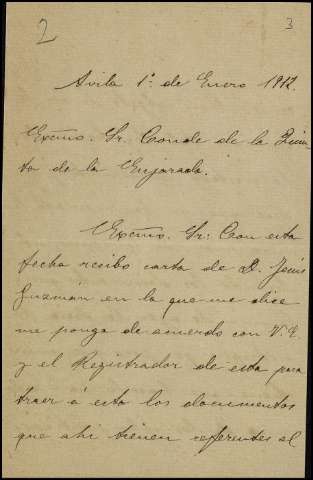 2 3
Avila 1º de Enero 1912.
Excmo. Sr. Conde de la Quin-
ta de la Enjarada.
Excmo. Sr: Con esta
fecha recibo carta de D. Jesús
Guzmán en la que me dice
me ponga de acuerdo con V.E.
y el Registrador de esta para
traer á esta los documentos
que ahi tienen referentes al